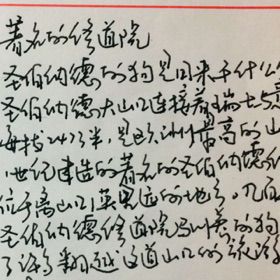 著名的修道院
圣伯纳德的狗是用来干什么
圣伯纳德大山口连接着瑞士与意
海拔2473米,是欧洲最高的山
世纪建造的著名的圣伯纳德
位于离山口英里远的地方,几
圣伯纳德修道院驯养的狗
了许翻越这道山口的旅